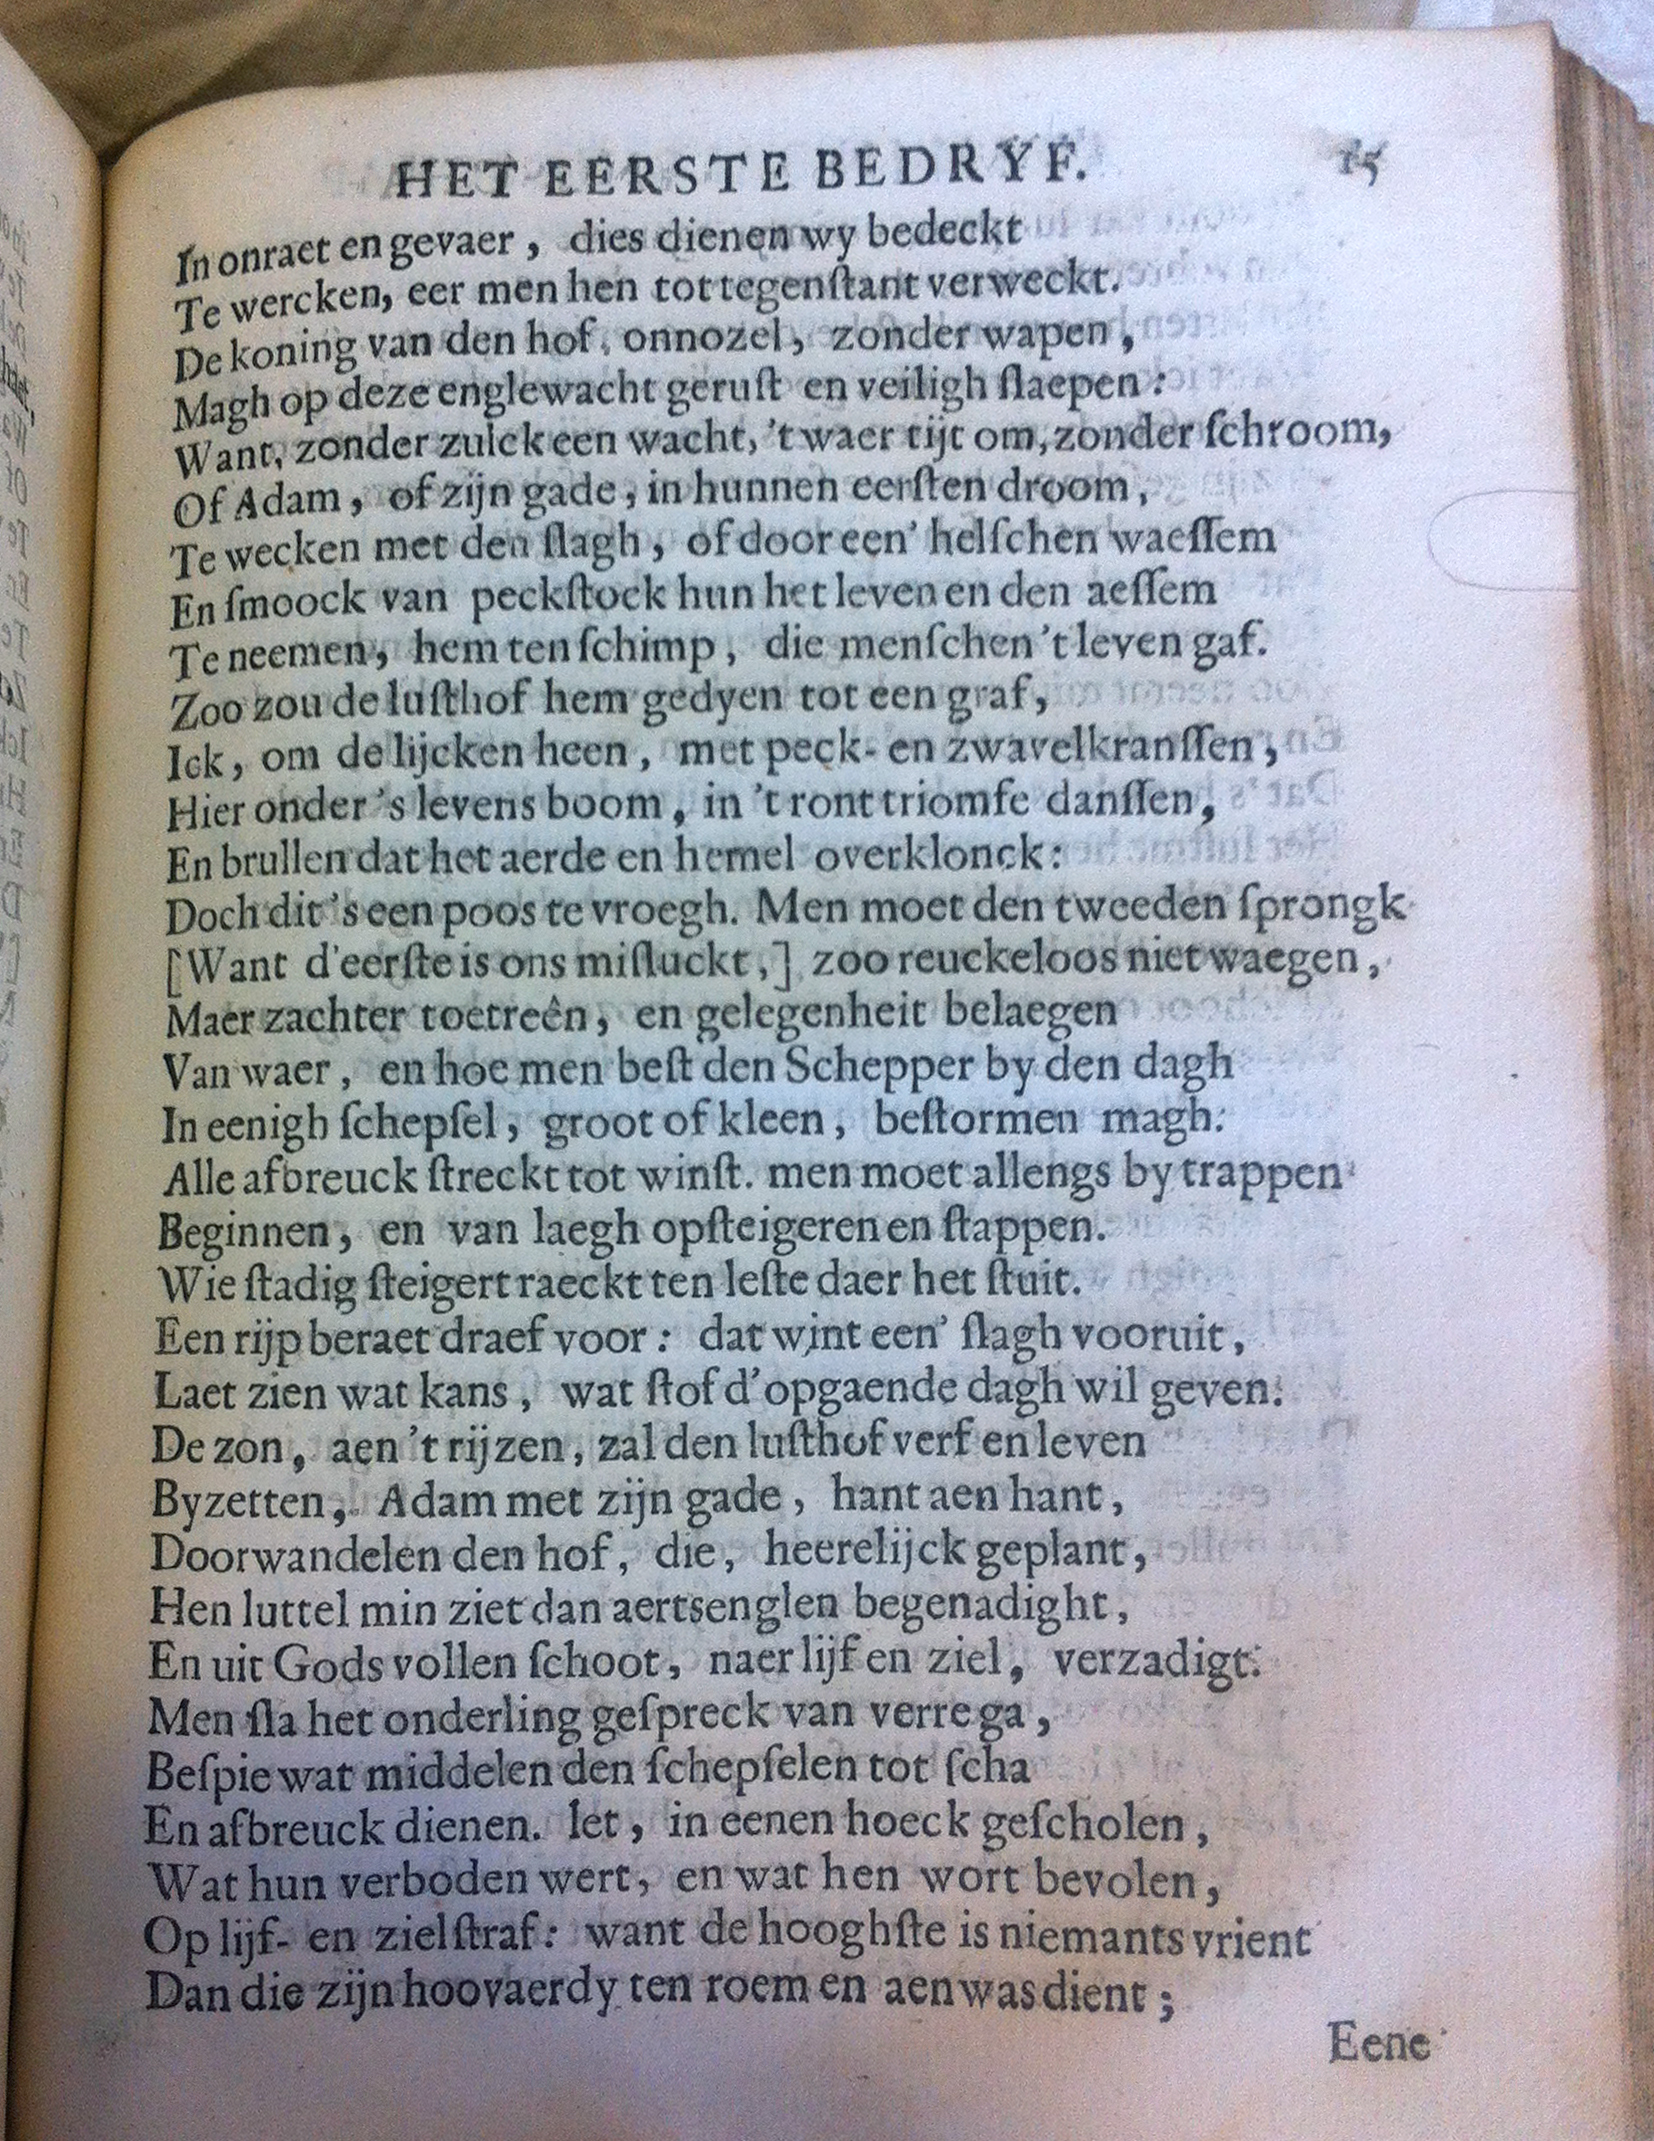 HET EERSTE BEDRYF. 15
In onraet en gevaer, dies dienen wy bedeckt
Te wercken, eer men hen tot tegenſtant verweckt.
De koning van den hof, onnozel, zonder wapen,
Magh op deze englewacht geruſt en veiligh ſlaepen:
Want, zonder zulck een wacht, 't waer tijt om, zonder ſchroom,
Of Adam, of zijn gade, in hunnen eerſten droom,
Te wecken met den ſlagh, of door een' helſchen waeſſem
En ſmoock van peckſtock hun het leven en den aeſſem
Te neemen, hem ten ſchimp, die menſchen 't leven gaf.
Zoo zou de luſthof hem gedyen tot een graf,
Ick, om de lijcken heen, met peck- en zwavelkranſſen,
Hier onder 's levens boom, in 't ront triomfe danſſen,
En brullen dat het aerde en hemel overklonck:
Doch dit 's een poos te vroegh. Men moet den tweeden ſprongk
[Want d'eerſte is ons miſluckt,] zoo reuckeloos niet waegen,
Maer zachter toetreên, en gelegenheit belaegen
Van waer, en hoe men beſt den Schepper by den dagh
In eenigh ſchepſel, groot of kleen, beſtormen magh.
Alle afbreuck ſtreckt tot winſt. men moet allengs by trappen
Beginnen, en van laegh opſteigeren en ſtappen.
Wie ſtadig ſteigert raeckt ten leſte daer het ſtuit.
Een rijp beraet draef voor: dat wint een' ſlagh vooruit,
Laet zien wat kans, wat ſtof d'opgaende dagh wil geven.
De zon, aen 't rijzen, zal den luſthof verf en leven
Byzetten, Adam met zijn gade, hant aen hant,
Doorwandelen den hof, die, heerelijck geplant,
Hen luttel min ziet dan aertsenglen begenadight,
En uit Gods vollen ſchoot, naer lijf en ziel, verzadigt.
Men ſla het onderling geſpreck van verre ga,
Beſpie wat middelen den ſchepſelen tot ſcha
En afbreuck dienen. let, in eenen hoeck geſcholen,
Wat hun verboden wert, en wat hen wort bevolen,
Op lijf- en zielſtraf: want de hooghſte is niemants vrient
Dan die zijn hoovaerdy ten roem en aenwas dient;
Eene